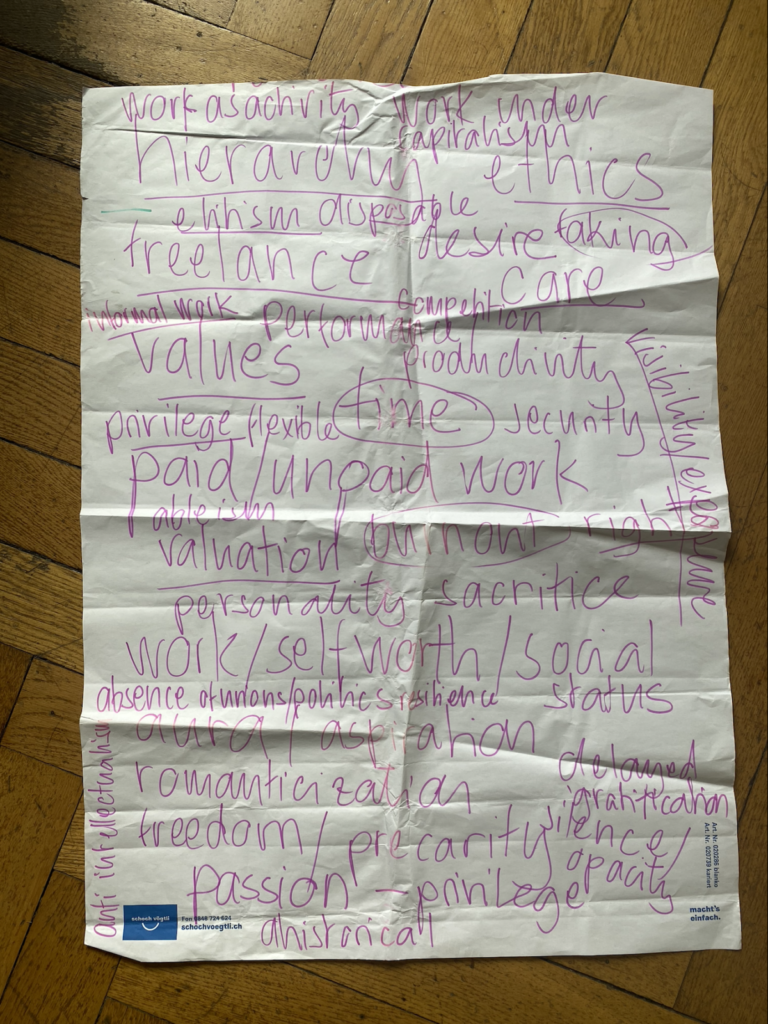 work as activity work under
capitalism
hierarchy ethics
elitism disposable
desire taking
freelance care
informal work competition
performance
values productivity
visibility/exposure
privilege flexible time security
paid/unpaid work
ableism
valuation burnout right
personality sacrifice
work/self worth/social
status
absence of unions/politics resilience
aura/aspiration
anti intellectualism
delayed
gratification
romanticization
freedom/precarity silence/
opacity
passion - privilege
ahistorical
schoch vögtli
Fon 0848 724 624
schochvoegtli.ch
Art. Nr. 020286 blanko
Art. Nr. 020739 kariert
macht's
einfach.